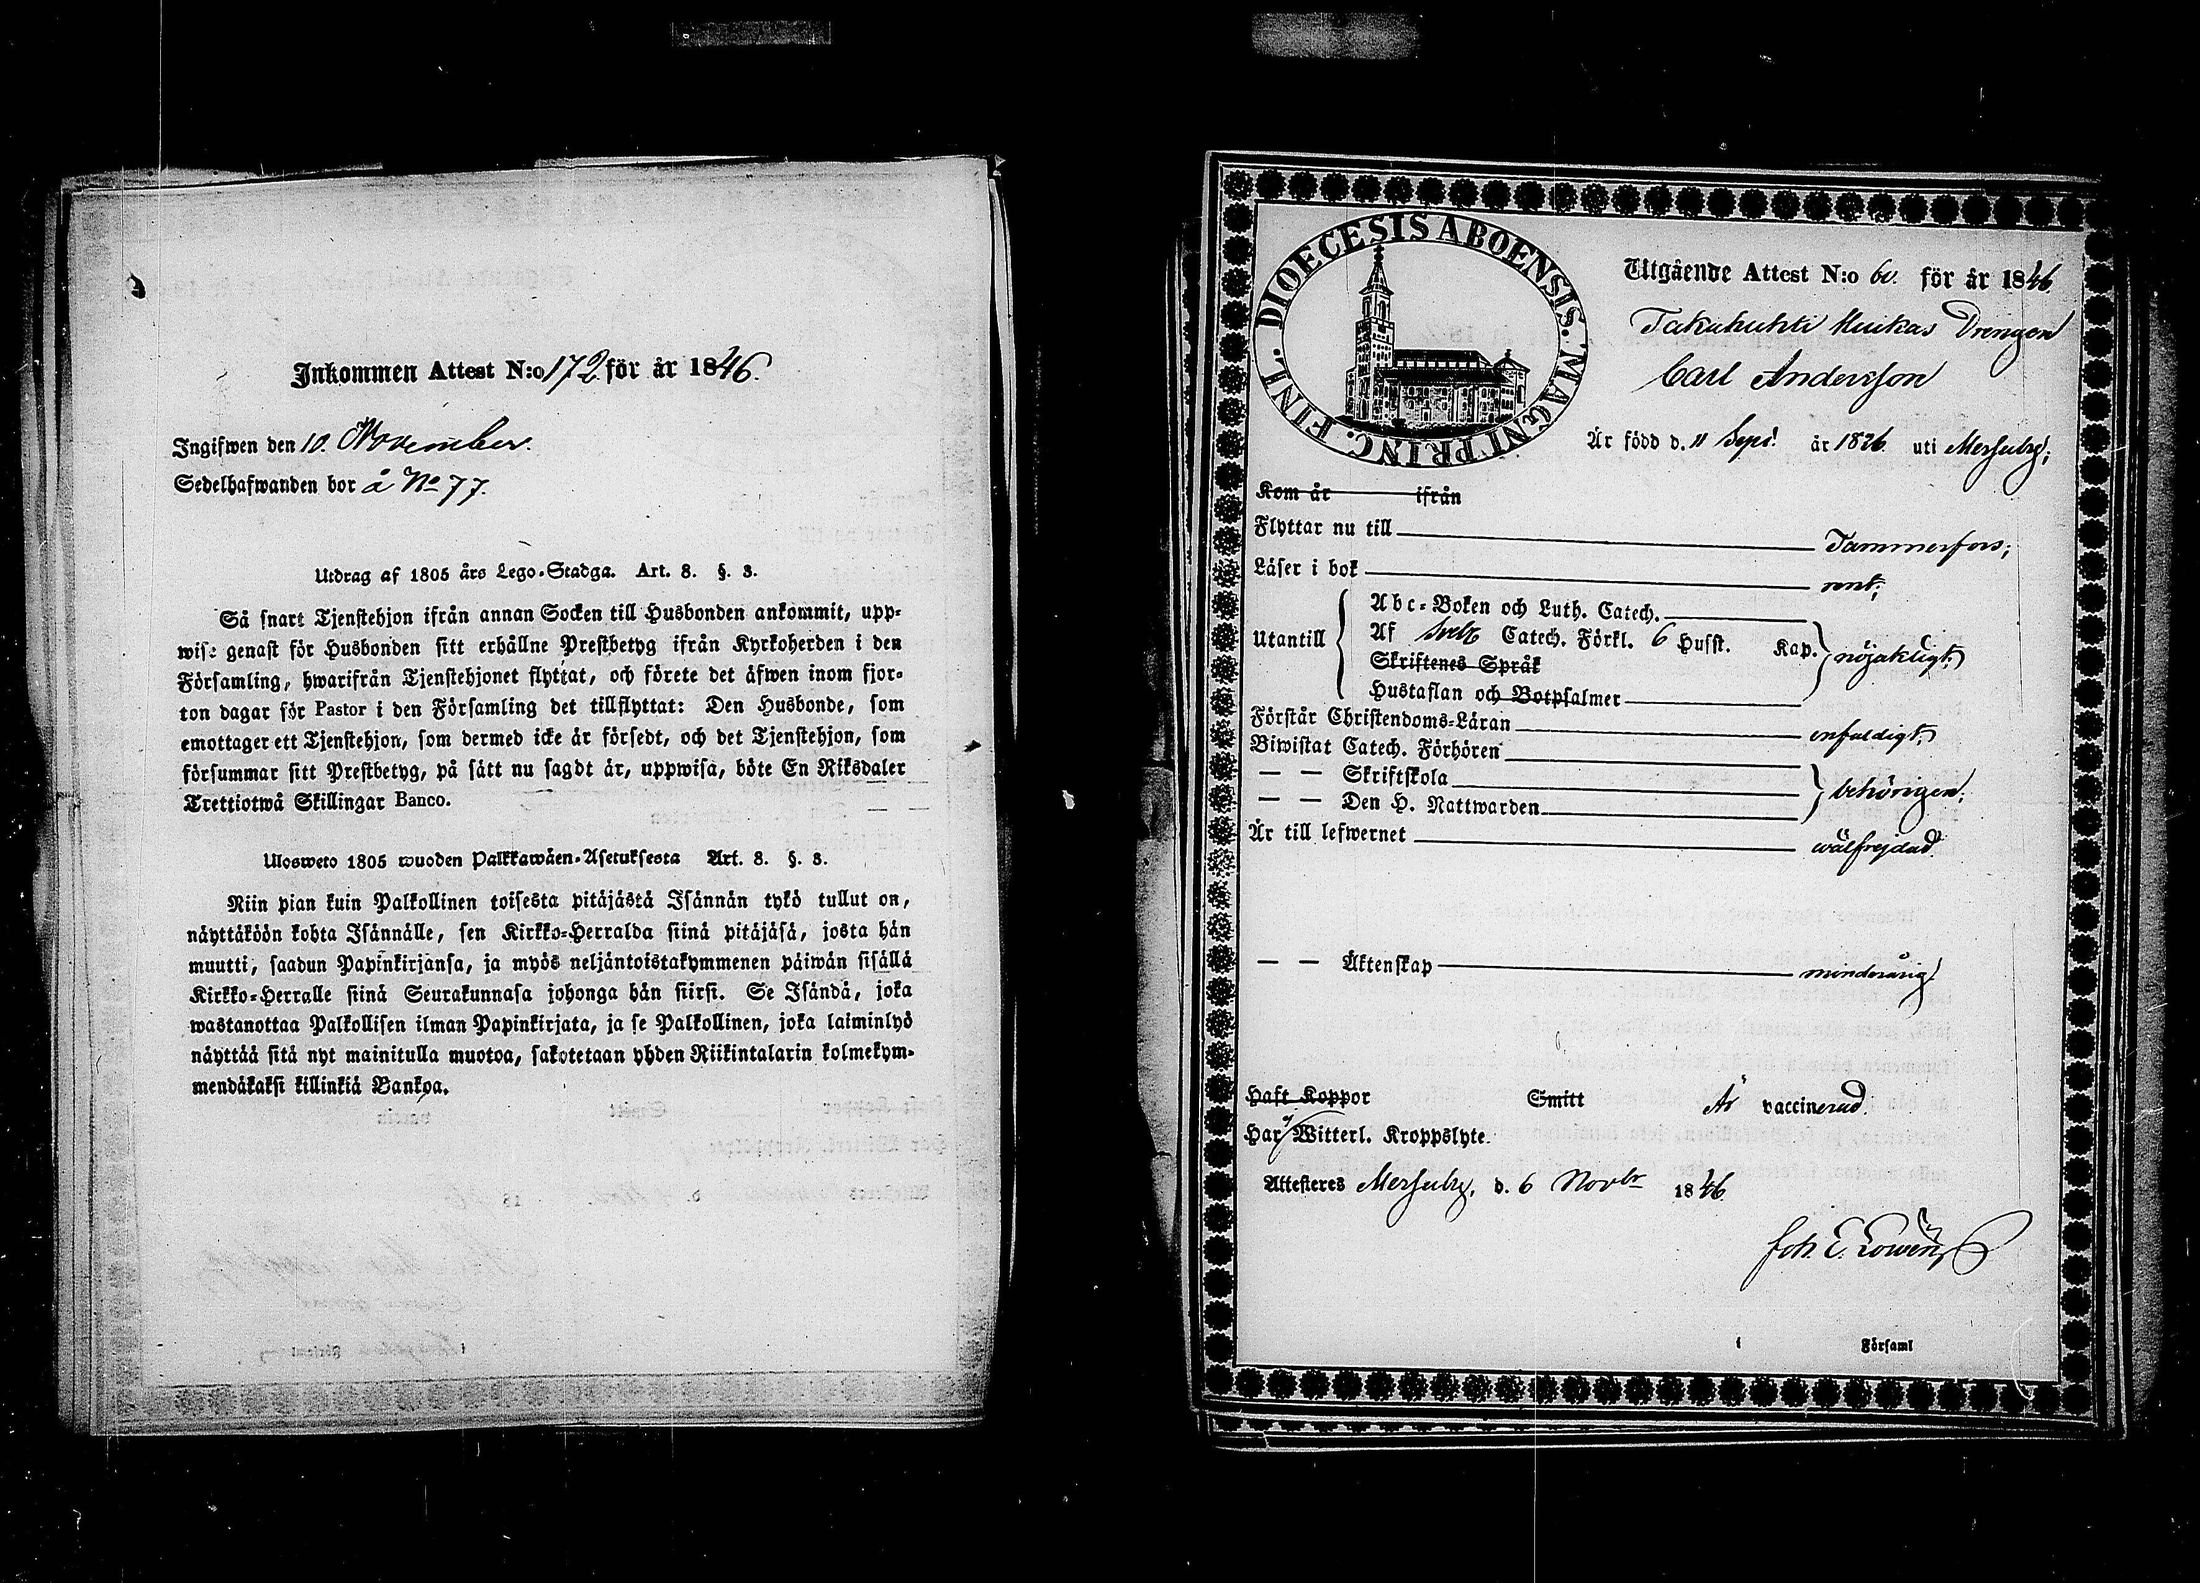 Inkommen Attest N:o 172 för år 1846.
Ingifwen den 10. November.
Sedelhafwanden bor å No 77.
Utdrag af 1805 års Lego-Stadga. Art. 8. §. 3.
Så snart Tjenstehjon ifrån annan Socken till Husbonden ankommit, upp-
wise genast för Husbonden sitt erhållne Prestbetyg ifrån Kyrkoherden i den
Församling, hwarifrån Tjenstehjonet flyttat, och förete det äfwen inom fjor-
ton dagar för Pastor i den Församling det tillflyttat: Den Husbonde, som
emottager ett Tjenstehjon, som dermed icke är försedt, och det Tjenstehjon, som
försummar sitt Prestbetyg, på sätt nu sagdt är, uppwisa, böte En Riksdaler
Trettiotwå Skillingar Banco.
Ulosweto 1805 wuoden Palkkawäen-Asetuksesta Art. 8. §. 3.
Niin pian kuin Palkollinen toisesta pitäjästä Isännän tykö tullut on,
näyttäköön kohta Isännälle, sen Kirkko-Herralda siinä pitäjäsä, josta hän
muutti, saadun Papinkirjansa, ja myös neljäntoistakymmenen päiwän sisällä
Kirkko-Herralle siinä Seurakunnasa johonga hän siirsi. Se Isändä, joka
wastanottaa Palkollisen ilman Papinkirjata, ja se Palkollinen, joka laiminlyö
näyttää sitä nyt mainitulla muotoa, sakotetaan yhden Riikintalarin kolmekym-
mendäkaksi killinkiä Bankoa.
DIOECESIS ABOENSIS. MAGNI PRINC. FINL.
Utgående Attest N:o 60. för år 1846.
Takahuhti Uukas Drengen
Carl Andersson
Är född d. 11 Sept. år 1826 uti Messuby;
Kom år ifrån
Flyttar nu till Tammerfors;
Läser i bok rent;
Utantill
Abc-Boken och Luth. Catech.
Af Sveb Catech. Förkl. 6 Hufst. Kap. nöjaktigt;
Skriftenes Språk
Hustaflan och Botpsalmer
Förstår Christendoms-Läran enfaldigt;
Biwistat Catech. Förhören
— — Skriftskola behörigen;
— — Den H. Nattwarden
Är till lefwernet wälfrejdad.
— — Äktenskap minderårig
Haft Koppor Smitt Är vaccinerad.
Har ej Witterl. Kroppslyte
Attesteres Messuby, d. 6 Novbr 1846
Joh. E. Lowén
i Församl